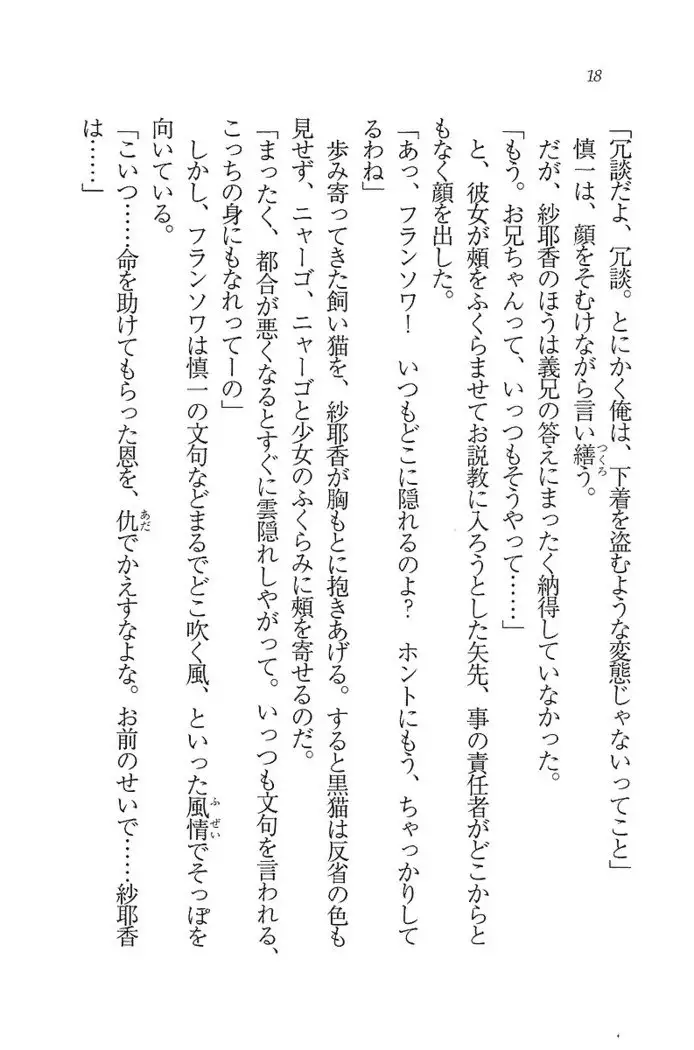 18
「冗談だよ、冗談。とにかく俺は、下着を盗むような変態じゃないってこと」
慎一は、顔をそむけながら言い繕う。
つくろ
だが、紗耶香のほうは義兄の答えにまったく納得していなかった。
「もう。お兄ちゃんって、いっつもそうやって……」
と、彼女が頰をふくらませてお説教に入ろうとした矢先、事の責任者がどこからと
もなく顔を出した。
「あっ、フランソワ！　いつもどこに隠れるのよ？　ホントにもう、ちゃっかりして
るわね」
歩み寄ってきた飼い猫を、紗耶香が胸もとに抱きあげる。すると黒猫は反省の色も
見せず、ニャーゴ、ニャーゴと少女のふくらみに頰を寄せるのだ。
「まったく、都合が悪くなるとすぐに雲隠れしやがって。いっつも文句を言われる、
こっちの身にもなれってーの」
しかし、フランソワは慎一の文句などまるでどこ吹く風、といった風情でそっぽを
ふぜい
向いている。
「こいつ……命を助けてもらった恩を、仇でかえすなよな。お前のせいで……紗耶香
あだ
は……」